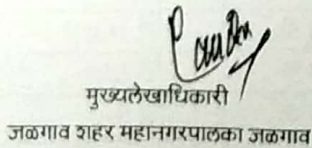 मुख्यलेखाधिकारी
जळगाव शहर महानगरपालका जळगाव